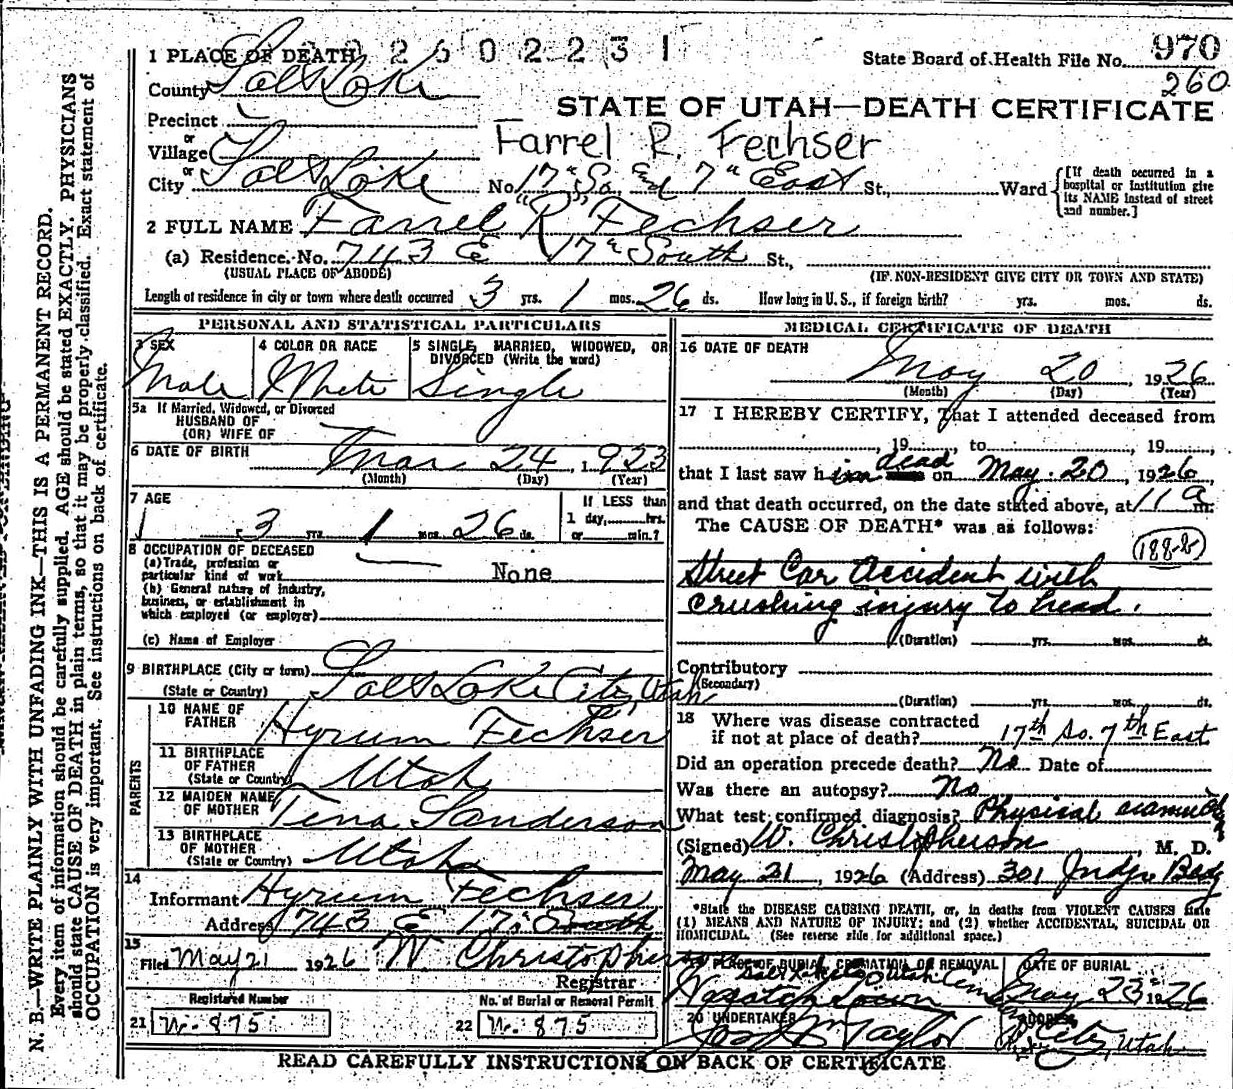 1 PLACE OF DEATH 2 6 0 2 2 3 1
State Board of Health File No. 970
260
County Salt Lake
STATE OF UTAH—DEATH CERTIFICATE
Precinct
or
Village
Farrel R. Fechser
or
City Salt Lake No. 17th So. and 7th East St., Ward
[If death occurred in a hospital or institution give its NAME instead of street and number.]
2 FULL NAME Farrel "R" Fechser
(a) Residence. No. 743 E 17th South St.,
(USUAL PLACE OF ABODE) (IF NON-RESIDENT GIVE CITY OR TOWN AND STATE)
Length of residence in city or town where death occurred 3 yrs. 1 mos. 26 ds. How long in U. S., if foreign birth? yrs. mos. ds.
PERSONAL AND STATISTICAL PARTICULARS
3 SEX Male
4 COLOR OR RACE White
5 SINGLE, MARRIED, WIDOWED, OR DIVORCED (Write the word) Single
5a If Married, Widowed, or Divorced
HUSBAND OF
(OR) WIFE OF
6 DATE OF BIRTH Mar 24, 1923
(Month) (Day) (Year)
7 AGE 3 yrs. 1 mos. 26 ds.
If LESS than
1 day, hrs.
or min.?
8 OCCUPATION OF DECEASED
(a) Trade, profession or
particular kind of work None
(b) General nature of industry,
business, or establishment in
which employed (or employer)
(c) Name of Employer
9 BIRTHPLACE (City or town) Salt Lake City, Utah
(State or Country)
PARENTS
10 NAME OF FATHER Hyrum Fechser
11 BIRTHPLACE OF FATHER Utah
(State or Country)
12 MAIDEN NAME OF MOTHER Tena Sanderson
13 BIRTHPLACE OF MOTHER Utah
(State or Country)
14
Informant Hyrum Fechser
Address 743 E 17th South
15
Filed May 21 1926 W Christopherson
Registrar
Registered Number
21 W-875
No. of Burial or Removal Permit
22 W-875
MEDICAL CERTIFICATE OF DEATH
16 DATE OF DEATH
May 20, 1926
(Month) (Day) (Year)
17 I HEREBY CERTIFY, That I attended deceased from
, 19 , to , 19 ,
that I last saw him dead on May 20, 1926,
and that death occurred, on the date stated above, at 11 a m.
The CAUSE OF DEATH* was as follows:
(188-b)
Street Car accident with
crushing injury to head.
(Duration) yrs. mos. ds.
Contributory
(Secondary)
(Duration) yrs. mos. ds.
18 Where was disease contracted
if not at place of death? 17th So. 7th East
Did an operation precede death? No Date of
Was there an autopsy? No
What test confirmed diagnosis? Physical
(Signed) W. Christopherson, M. D.
May 21, 1926 (Address) 301 Judge Bldg
*State the DISEASE CAUSING DEATH, or, in deaths from VIOLENT CAUSES state
(1) MEANS AND NATURE OF INJURY; and (2) whether ACCIDENTAL, SUICIDAL OR
HOMICIDAL. (See reverse side for additional space.)
19 PLACE OF BURIAL, CREMATION OR REMOVAL
Salt Lake City Utah
Wasatch Lawn
DATE OF BURIAL
May 23rd 1926
20 UNDERTAKER
Jos Wm Taylor
ADDRESS
City, Utah
READ CAREFULLY INSTRUCTIONS ON BACK OF CERTIFICATE
N. B.—WRITE PLAINLY WITH UNFADING INK—THIS IS A PERMANENT RECORD.
Every item of information should be carefully supplied. AGE should be stated EXACTLY. PHYSICIANS
should state CAUSE OF DEATH in plain terms, so that it may be properly classified. Exact statement of
OCCUPATION is very important. See instructions on back of certificate.